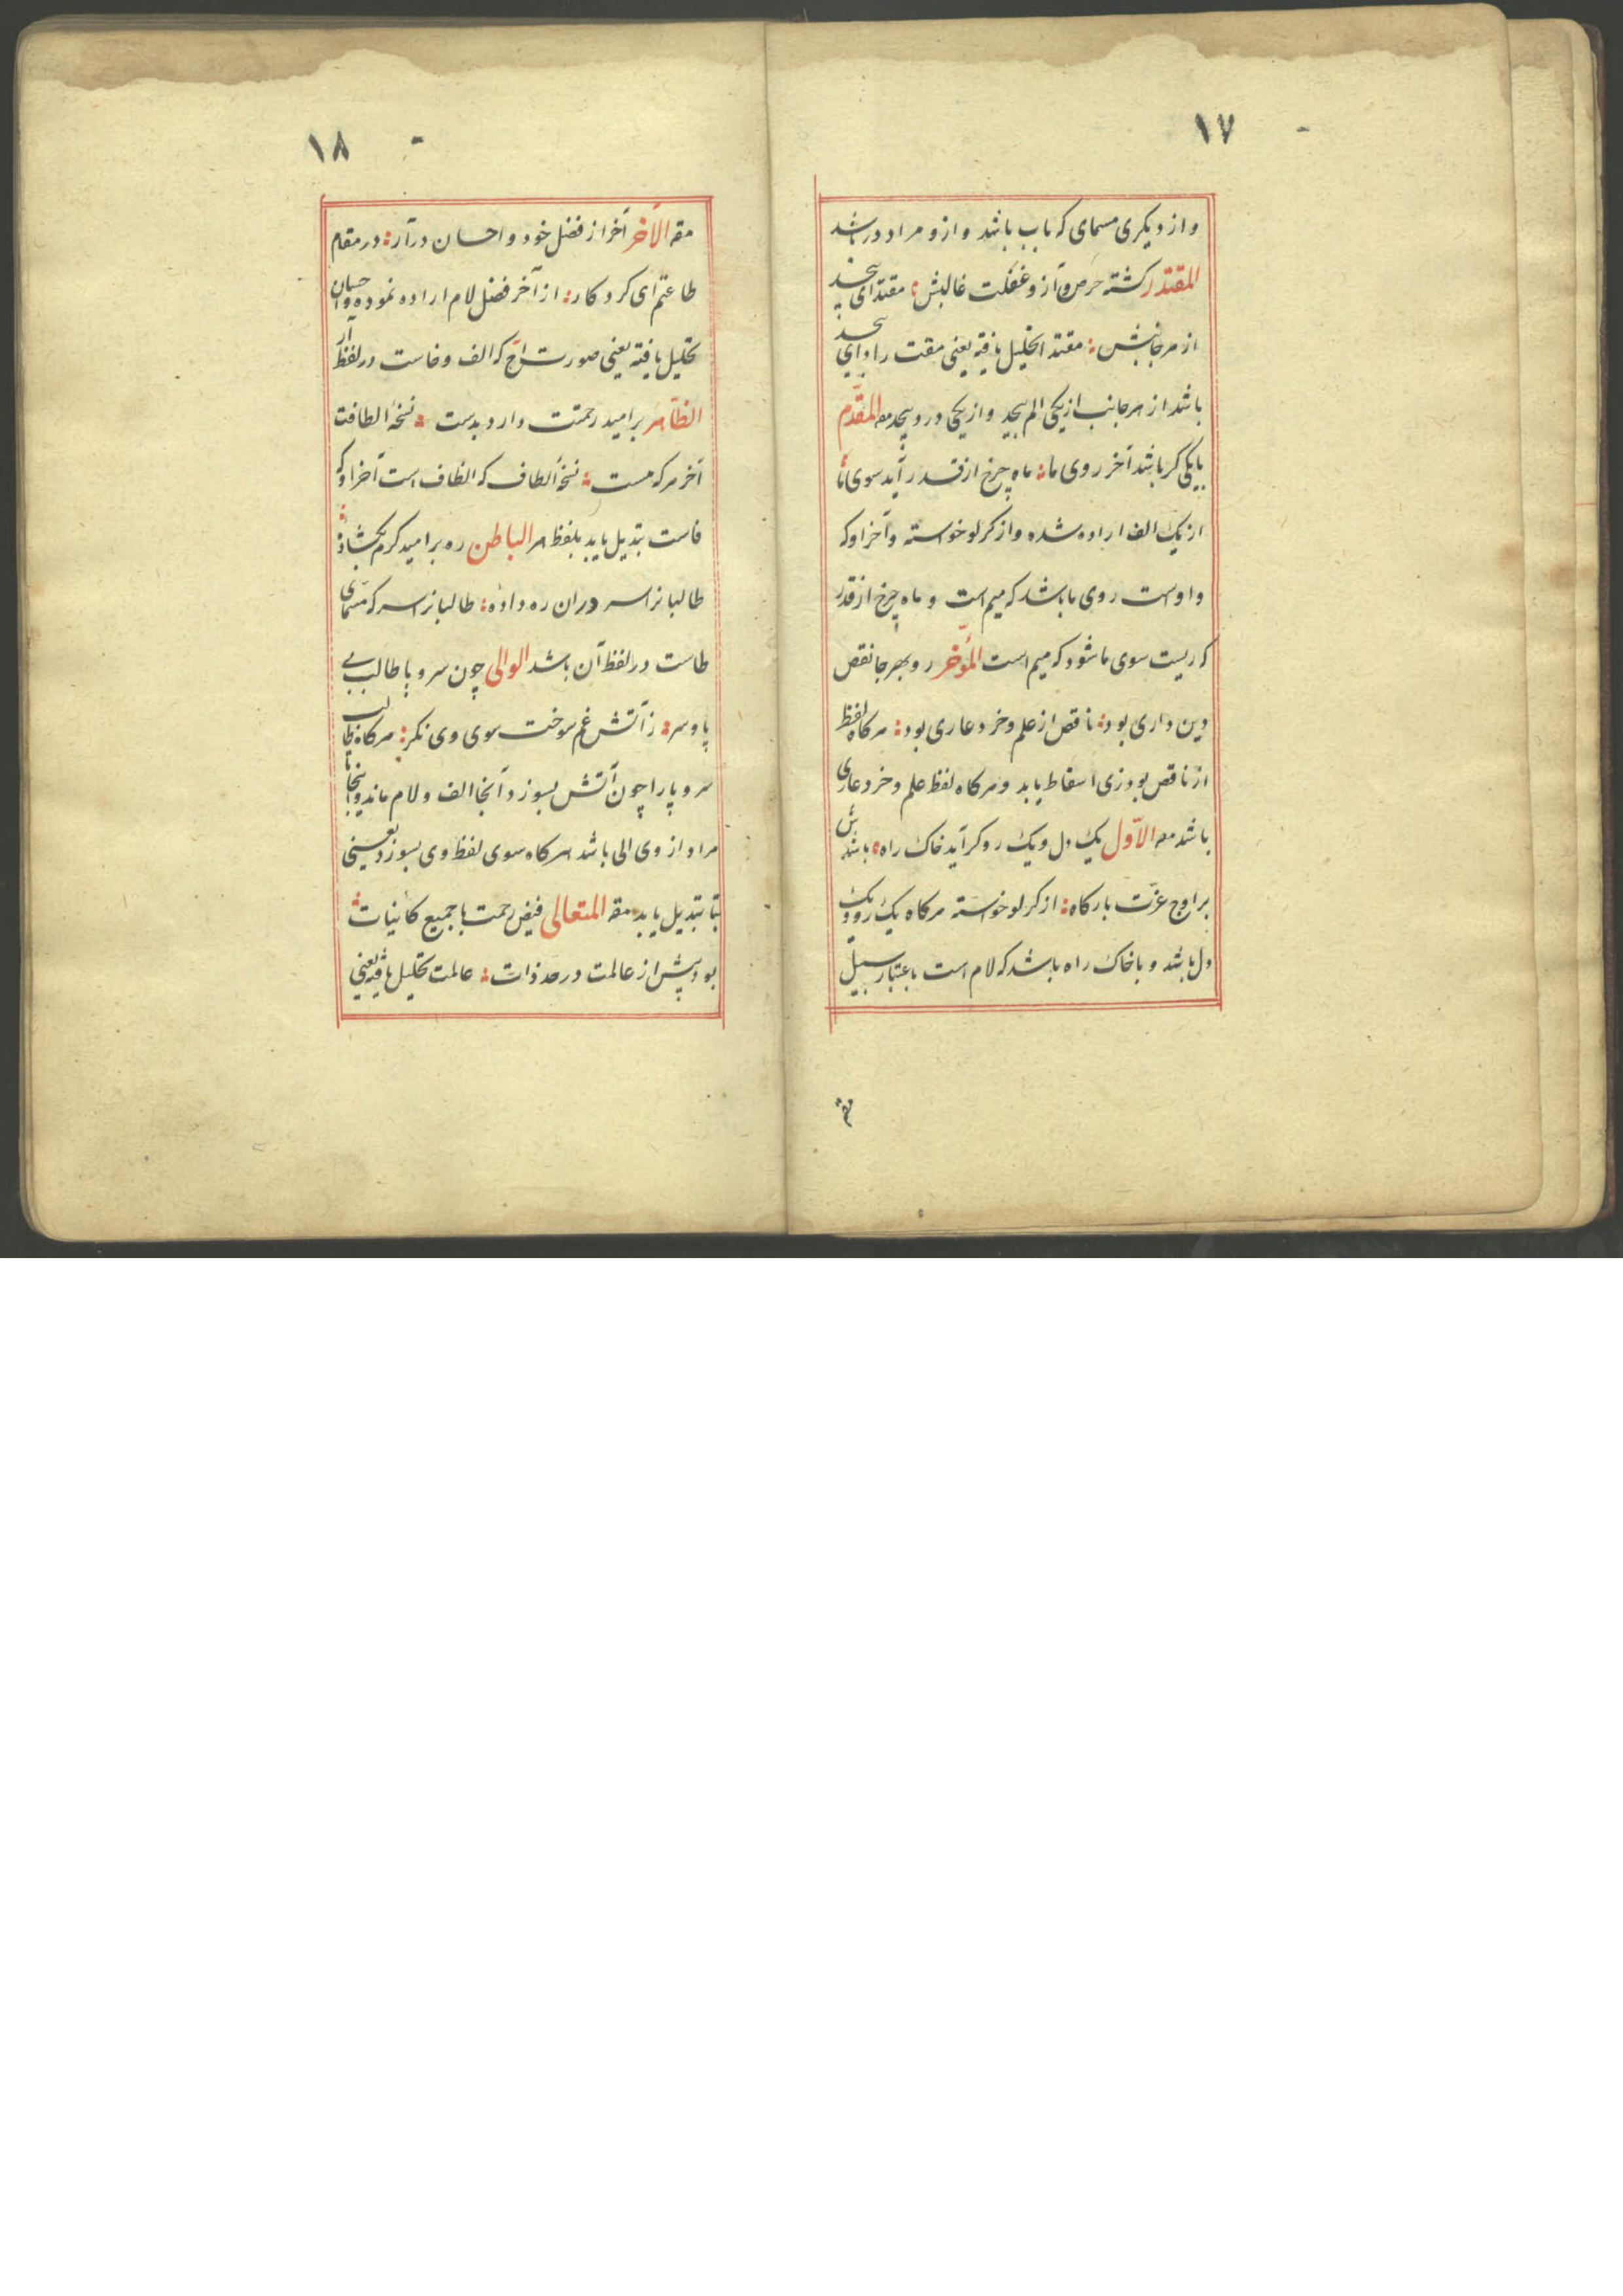 ١٧
و از دیکری مسمای که باب باشد و ازو مراد در باشد
المقتدر کشته حرص و آز و غفلت غالبش ؛ مقتدای بیحد
از هر جانبش ؛ مقتدا تحلیل یافته یعنی مقت را دای بیحد
باشد از هر جانب از یکی الم بیحد و از یکی درد بیحد مقه المقدّم
با یکی کر باشد آخر روی ما ؛ ماه چرخ از قد در آید سوی ما
از یک الف اراده شده و از کر لو خواسته و آخر او که
واوست روی ما باشد که میم است و ماه چرخ از قدر
که ریست سوی ما شود که میم است المؤخر رو بهر جا نقص
دین داری بود ؛ ناقص از علم و خرد عاری بود ؛ هرکاه لفظ
از ناقص بود زی اسقاط یابد و هرکاه لفظ علم و خرد عاری
باشد مقه الاوّل یک دل و یک رو کر آید خاک راه ؛ باشدش
بر اوج عزّت بارکاه ؛ از کر لو خواسته هرکاه یک رو و یک
دل باشد و با خاک راه باشد که لام است باعتبار سبیل
مقه
١٨
مقه الآخر آخر از فضل خود و احسان در آر ؛ در مقام
طاعتم ای کردکار ؛ از آخر فضل لام اراده نموده و احسان
تحلیل یافته یعنی صورت اح که الف و خاست در لفظ آر
الظاهر بر امید رحمتت دارد بدست ؛ نسخهٔ الطافت
آخر هر که هست ؛ نسخهٔ الطاف که الظاف است آخر او که
فاست تبدیل یابد بلفظ هر الباطن ره بر امید کرم بکشاده ؛
طالبانرا سر دران ره داده ؛ طالبانرا سر که مسمّای
طاست در لفظ آن باشد الوالی چون سر و پا طالب بی
پا و سر ؛ ز آتش غم سوخت سوی وی نکر ؛ هرکاه طالب
سر و پا را چون آتش بسوزد آنجا الف و لام ماند و اینجا
مراد از وی الی باشد هرکاه سوی لفظ وی بسوزد یعنی
بتا تبدیل یابد مقه المتعالی فیض رحمت با جمیع کائینات ؛
بود پیش از عالمت در حد ذات ؛ عالمت تحلیل یافته یعنی